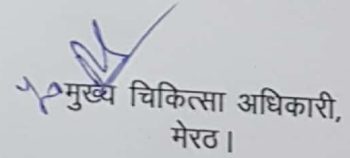 मुख्य चिकित्सा अधिकारी,
मेरठ।